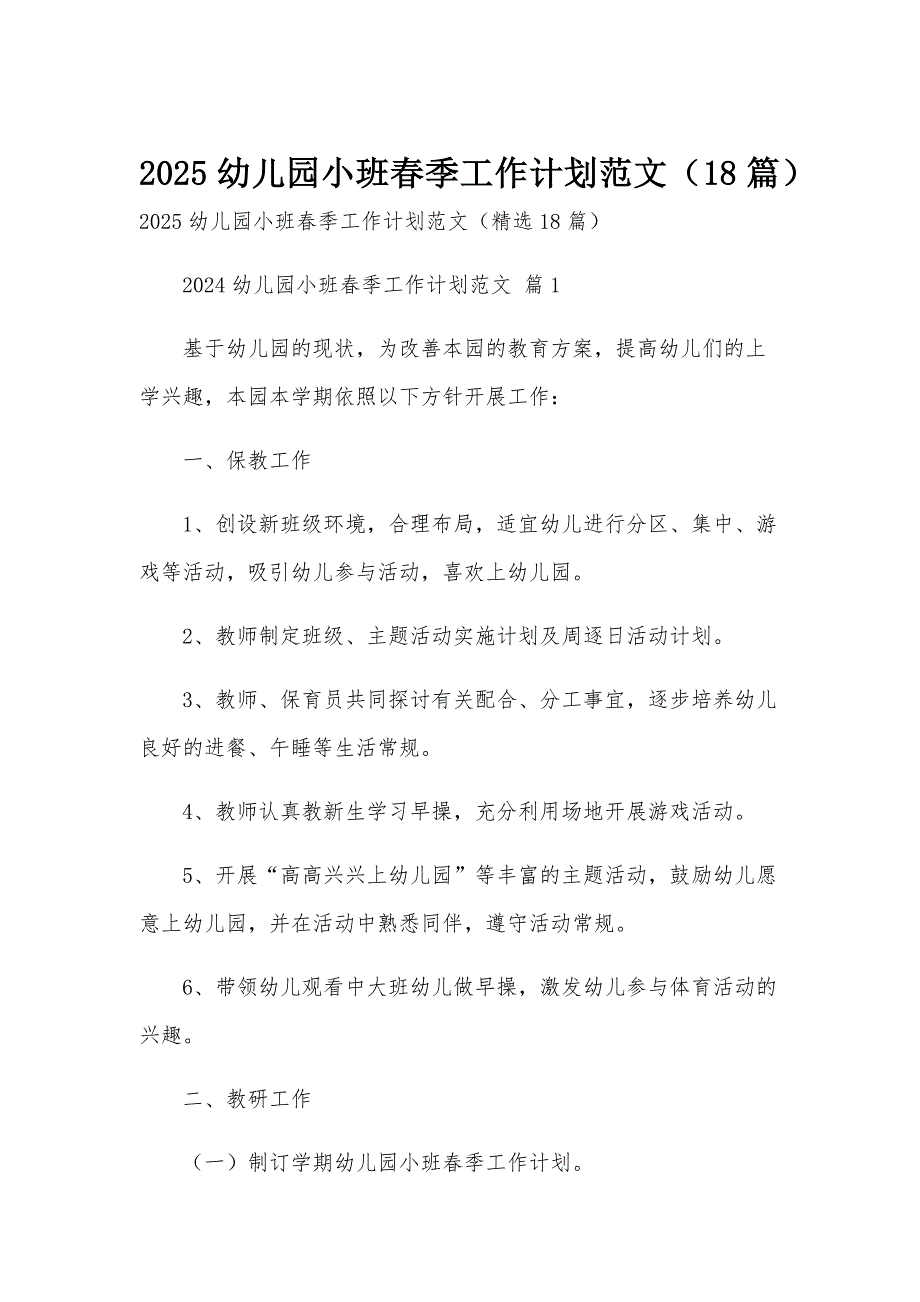 2025 幼儿园小班春季工作计划范文（18 篇）
2025 幼儿园小班春季工作计划范文（精选 18 篇）
2024 幼儿园小班春季工作计划范文 篇 1
基于幼儿园的现状，为改善本园的教育方案，提高幼儿们的上
学兴趣，本园本学期依照以下方针开展工作：
一、保教工作
1、创设新班级环境，合理布局，适宜幼儿进行分区、集中、游
戏等活动，吸引幼儿参与活动，喜欢上幼儿园。
2、教师制定班级、主题活动实施计划及周逐日活动计划。
3、教师、保育员共同探讨有关配合、分工事宜，逐步培养幼儿
良好的进餐、午睡等生活常规。
4、教师认真教新生学习早操，充分利用场地开展游戏活动。
5、开展“高高兴兴上幼儿园”等丰富的主题活动，鼓励幼儿愿
意上幼儿园，并在活动中熟悉同伴，遵守活动常规。
6、带领幼儿观看中大班幼儿做早操，激发幼儿参与体育活动的
兴趣。
二、教研工作
（一）制订学期幼儿园小班春季工作计划。